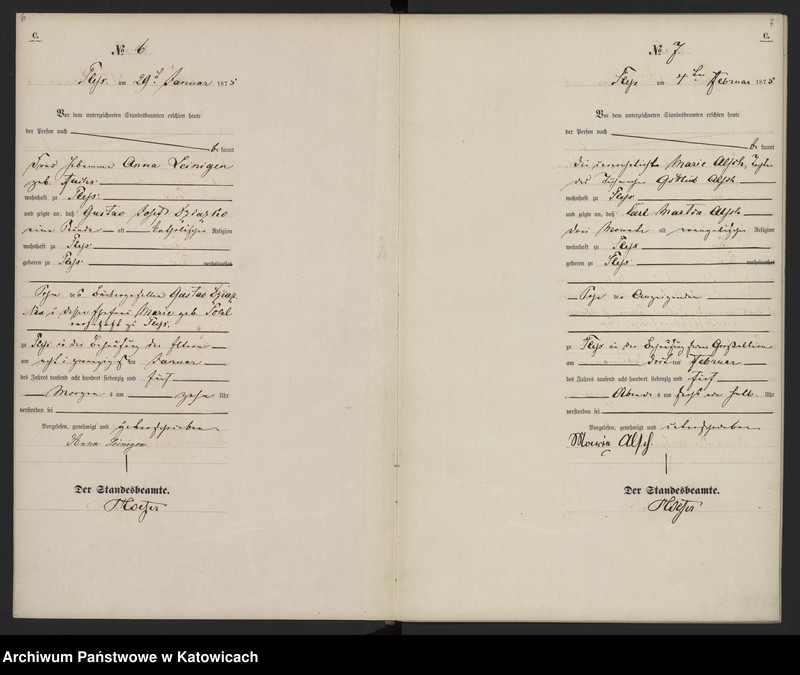 6
C.
№ 6
Pless am 29 t Januar 1875
Vor dem unterzeichneten Standesbeamten erschien heute
der Person nach
bekannt
Hebamme Anna Leinigen
geb.
wohnhaft zu Pless
und zeigte an, daß Gustav Josef
eine Stunde alt katholischer Religion
wohnhaft zu Pless
geboren zu Pless verheirathet
Sohn des Bäckergesellen Gustav
dessen Ehefrau Marie geb.
wohnhaft zu Pless
zu Pless in der Behausung der Eltern
am acht und zwanzigsten Januar
des Jahres tausend acht hundert siebenzig und fünf
Morgen s um zehn Uhr
verstorben sei
Vorgelesen, genehmigt und unterschrieben
Anna Leinigen
Der Standesbeamte.
7
C.
№ 7
Pless am 4 ten Februar 1875
Vor dem unterzeichneten Standesbeamten erschien heute
der Person nach
bekannt
die unverehelichte Marie Alsch, Tochter
des Gottlieb Alsch
wohnhaft zu Pless
und zeigte an, daß Carl Martin Alsch
drei Monate alt evangelischer Religion
wohnhaft zu Pless
geboren zu Pless verheirathet
Sohn der Anzeigenden
zu Pless in der Behausung Großeltern
am drei ten Februar
des Jahres tausend acht hundert siebenzig und fünf
Abend s um sechs ein halb Uhr
verstorben sei
Vorgelesen, genehmigt und unterschrieben
Marie Alsch.
Der Standesbeamte.
Archiwum Państwowe w Katowicach